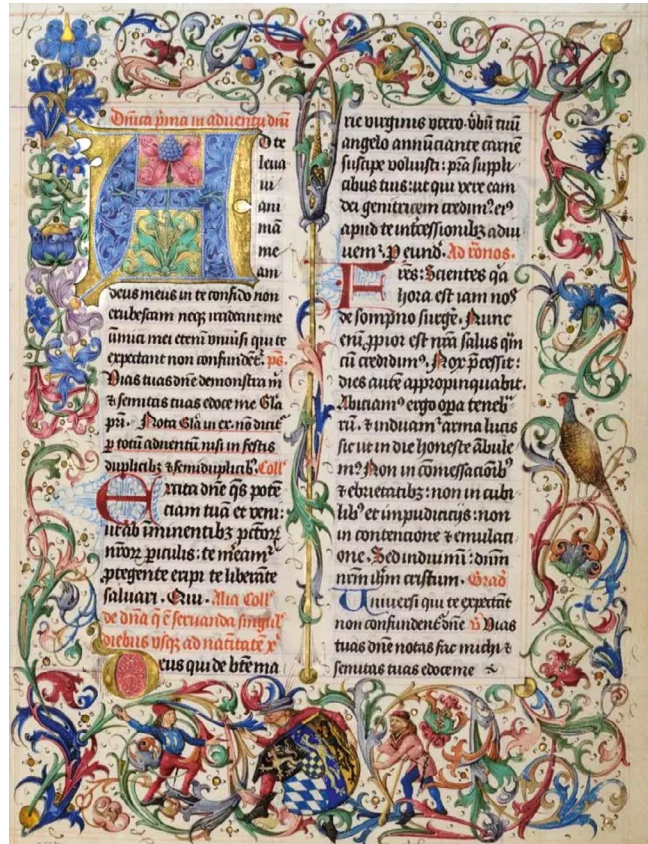 Dnīca p̄ma in adventu dnī
A
D te
leva
ui
ani
mā
me
am
deus meus in te confido non
erubescam neq; irrideant me
inimici mei etenī vniūsi qui te
expectant non confundēt. ps.
Vias tuas dn̄e demonstra m̄
⁊ semitas tuas edoce me Gla
pr̄i. Nota Glā in ex. nō dicit᷑
ꝑ totū adventū nisi in festis
duplicib; ⁊ semiduplicib. Coll᷑
Excita dn̄e q̄s potē
ciam tuā et veni:
ut ab īminentib; pctōꝝ
nr̄oꝝ ꝑiculis: te m̄eam᷑
ꝓtegente eripi te liberāte
salvari. Qui. Alia Coll᷑
de dn̄a q̄ ē servanda singul᷑
diebus vsq; ad natītatē x᷑
Deus qui de btē ma
rie virginis vtero. v̄bū tuū
angelo annūciante carnē
suscipe voluisti: pr̄a suppli
cibus tuis: ut qui vere eam
dei genitricem credim᷒. ei᷒
apud te int̄cessionib; adiu
vem᷑. P eund. Ad rōnos.
Fr̄es: Scientes q̄a
hora est iam nos
de sompno surgē. Nunc
enī ꝓpior est nr̄a salus q̄m
cū credidim᷒. Nox p̄cessit:
dies autē appropinquabit.
Abiciam᷒ ergo opa teneb
rū. ⁊ induam᷒ arma lucis
sic ut in die honeste ābule
m᷒ Non in comessacioīb᷒
⁊ ebrietatib;: non in cubi
lib᷒ et impudicicijs: non
in contencione ⁊ emulati
one. Sed induimī: dnm̄
nr̄m ih̄m cristum. Grad᷑
Universi qui te expectāt
non confundent᷑ dn̄e v̄ Vias
tuas dn̄e notas fac michi ⁊
semitas tuas edoce me